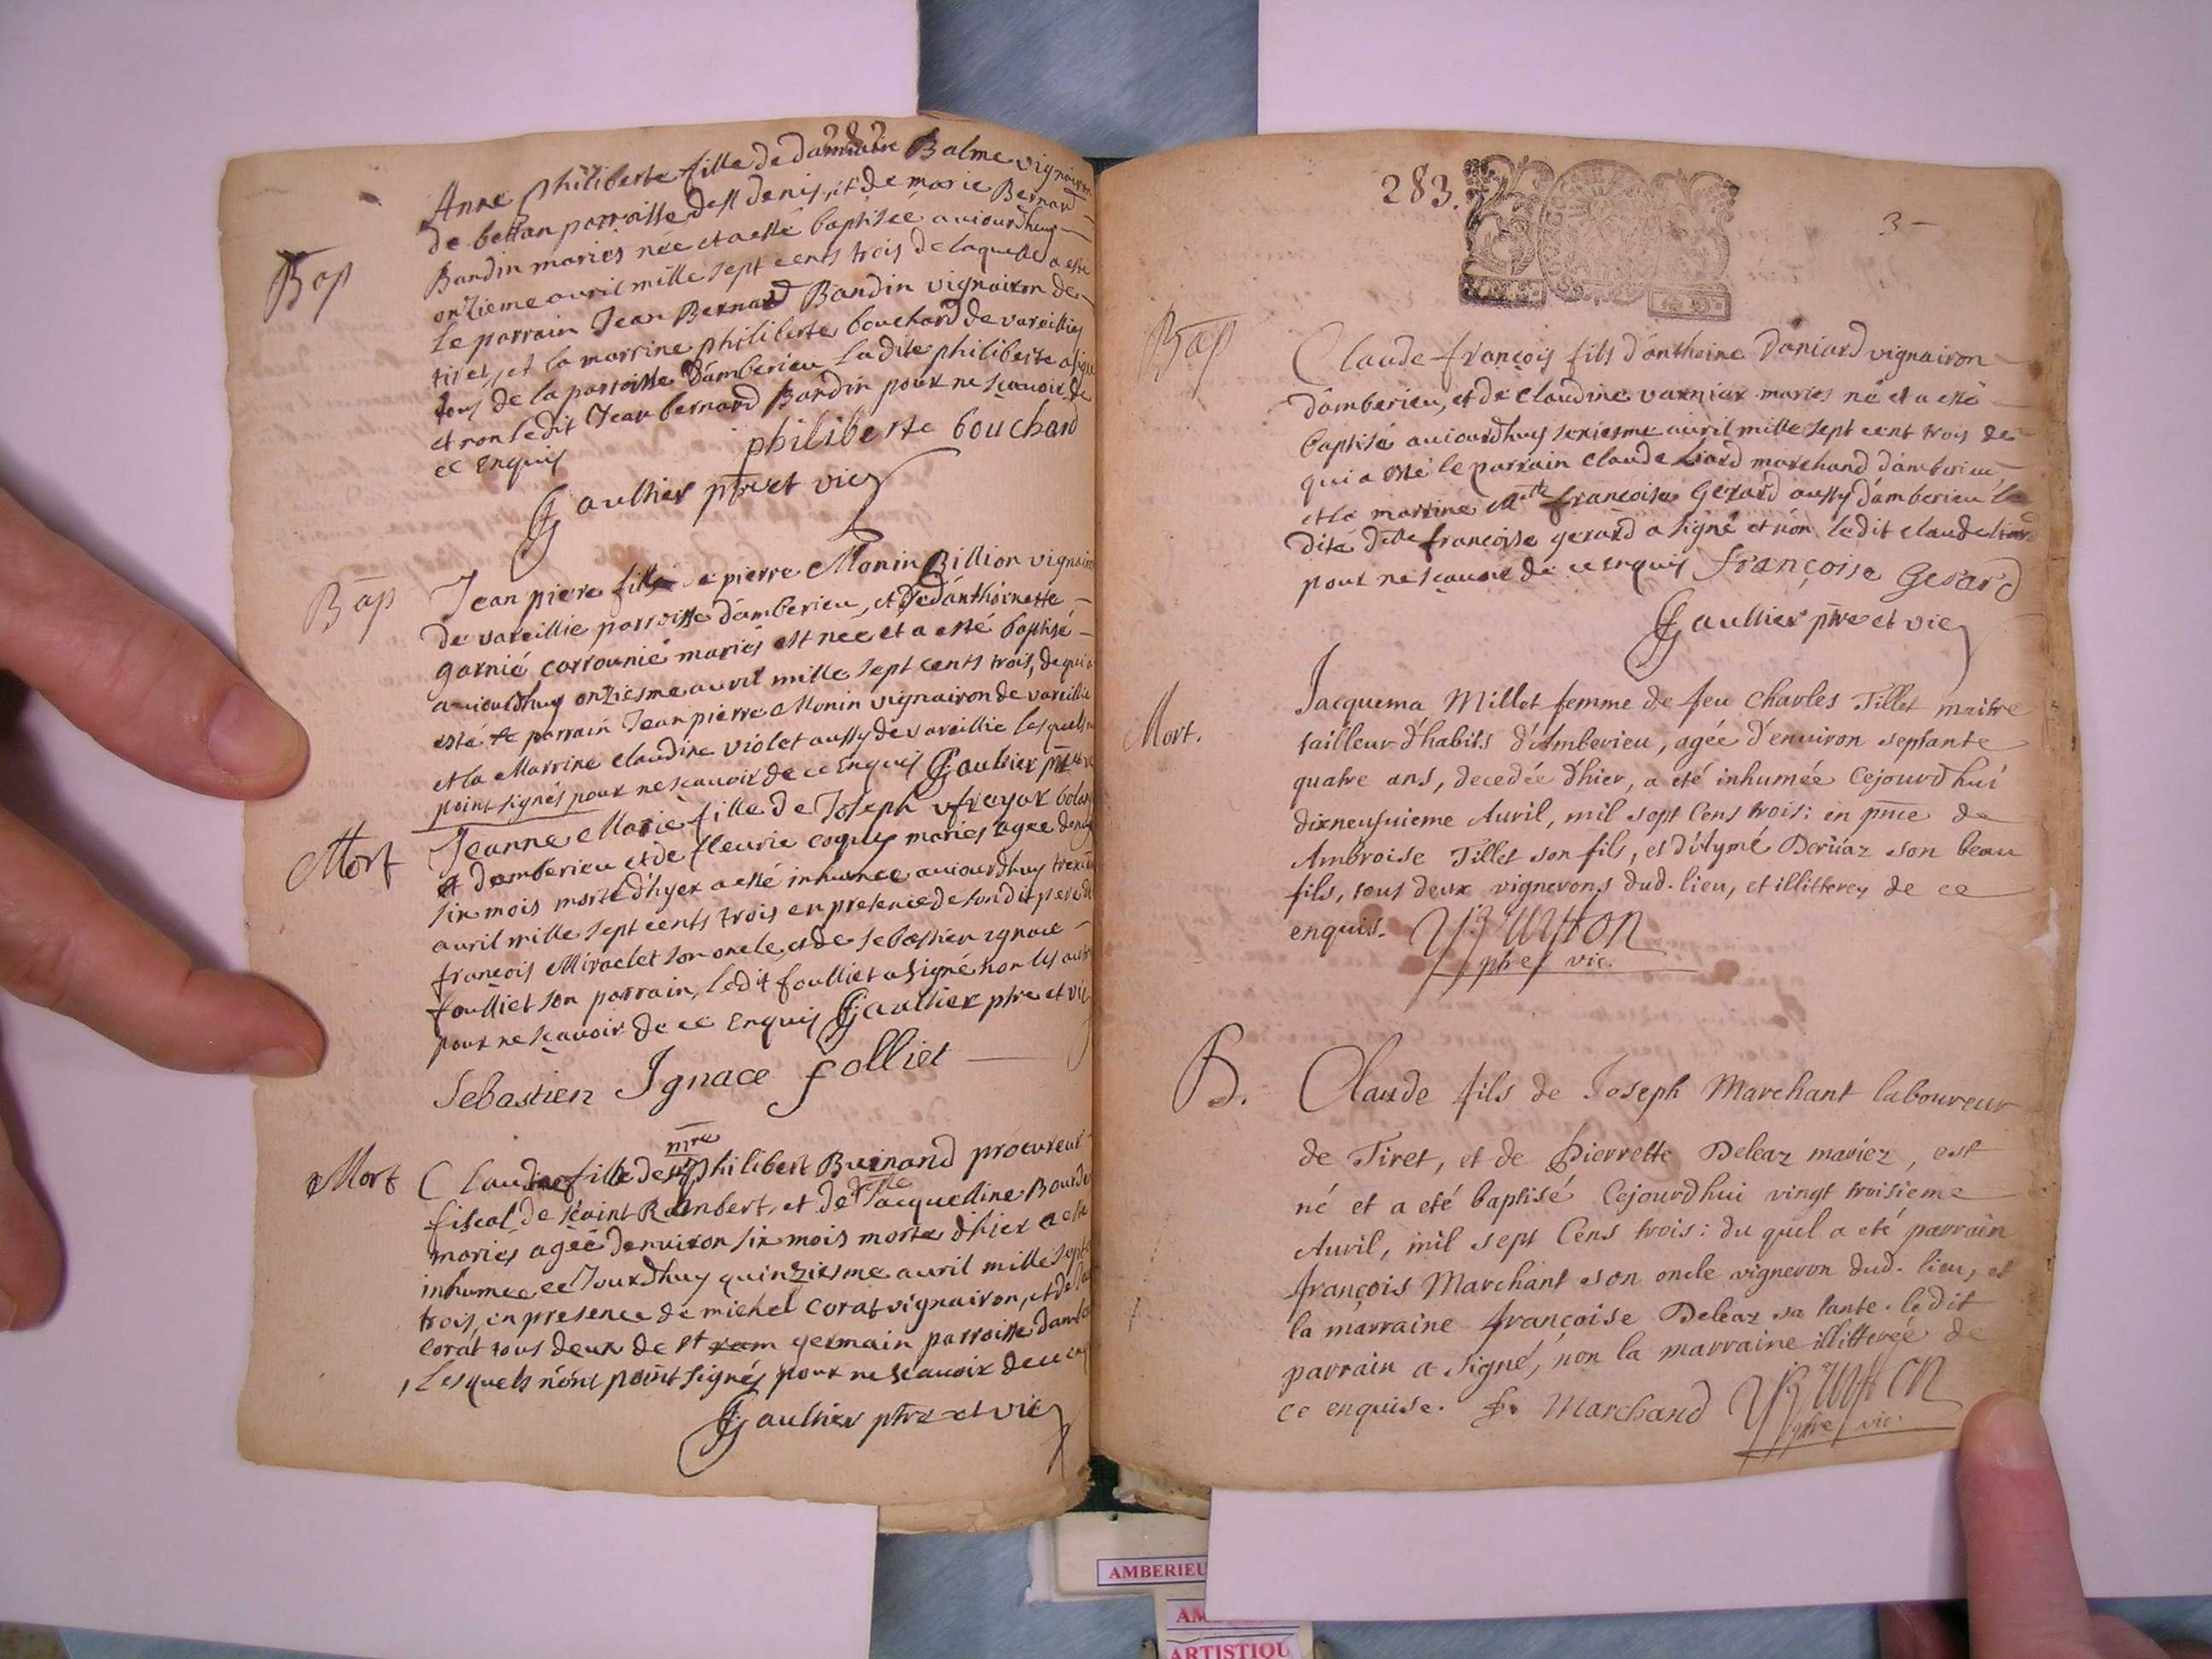 282
Anne philiberte fille de Balme vignairon
de bettan parroisse de st denis, et de marie Bernard
Bap
Bandin mariés née et a esté baptisée auiourdhuy
onzieme avril mille sept cents trois de laquelle a esté
le parrain Jean Bernard Bandin vignairon de
tiret, et la marrine philiberte bouchard de vareilles
tous de la parroisse d'amberieu ladite philiberte a signé
et non ledit Jean bernard Bandin pour ne scavoir de
ce enquis
philiberte bouchard
Gaultier ptre et vic
Bap
Jean piere fils de pierre Monin Billion vignairon
de vareillie parroisse d'amberieu, et d'anthoinette
garnié carrounié mariés est née et a esté baptisé
auiourdhuy onziesme avril mille sept cents trois, de qui a
esté le parrain Jean pierre Monin vignairon de vareillie
et la Marrine claudine violet aussy de vareillie lesquels
point signés pour ne scavoir de ce Enquis Gaultier ptre
Mort
Jeanne Marie fille de Joseph
d'amberieu et de fleurie coquy mariés agee
six mois morte d'hyer a esté inhumee auiourdhuy
avril mille sept cents trois en presence de son dit pere de
françois Miraclet son oncle et de sebastien ygnace
foulliet son parrain, ledit foulliet a signé non les autres
pour ne scavoir de ce enquis Gaultier ptre et vic
Sebastien Ignace folliet
mre
Mort
fille de philibert Buinand procureur
fiscal de saint Rambert, et de delle Jacquelline
mariés agée denviron six mois morte d'hier a esté
inhumee ce Jourdhuy quinziesme avril mille sept
trois, en presence de michel corat vignairon, et de
corat tous deux de st germain parroisse
Lesquels n'ont point signés pour ne scavoir de ce enquis
Gaultier ptre et vic
283.
3
Bap
Claude françois fils d'antheine Daniard vignairon
d'amberieu, et de claudine varniar mariés né et a esté
baptisé auiourdhuy seziesme avril mille sept cent trois de
qui a esté le parrain claude Liard marchand d'amberieu
et la marrine françoise Gerard aussy d'amberieu la
dite delle francoise gerard a signé et non ledit claude liard
pour ne scavoir de ce enquis françoise Gerard
Gaultier ptre et vic
Mort.
Jacquema Millet femme de feu Charles Tillet maitre
tailleur d'habits d'Amberieu, agée d'environ septante
quatre ans, decedée d'hier, a eté inhumée Cejourd'hui
dixneufuieme Auril, mil sept Cens trois: en pnce de
Ambroise Tillet son fils, et d'Aymé Deruaz son beau
fils, tous deux vignerons dud. lieu, et illitterez de ce
enquis.
ptre vic.
B.
Claude fils de Joseph Marchant laboureur
de Tiret, et de Pierrette Deleaz mariez, est
né et a eté baptisé Cejourd'hui vingt troisieme
Auril, mil sept Cens trois: du quel a eté parrain
françois Marchant son oncle vigneron dud. lieu, et
la marraine françoise Deleaz sa tante. ledit
parrain a signé, non la marraine illitterée de
ce enquise. fr. Marchand
ptre vic.
AMBERIEU
ARTISTIQU